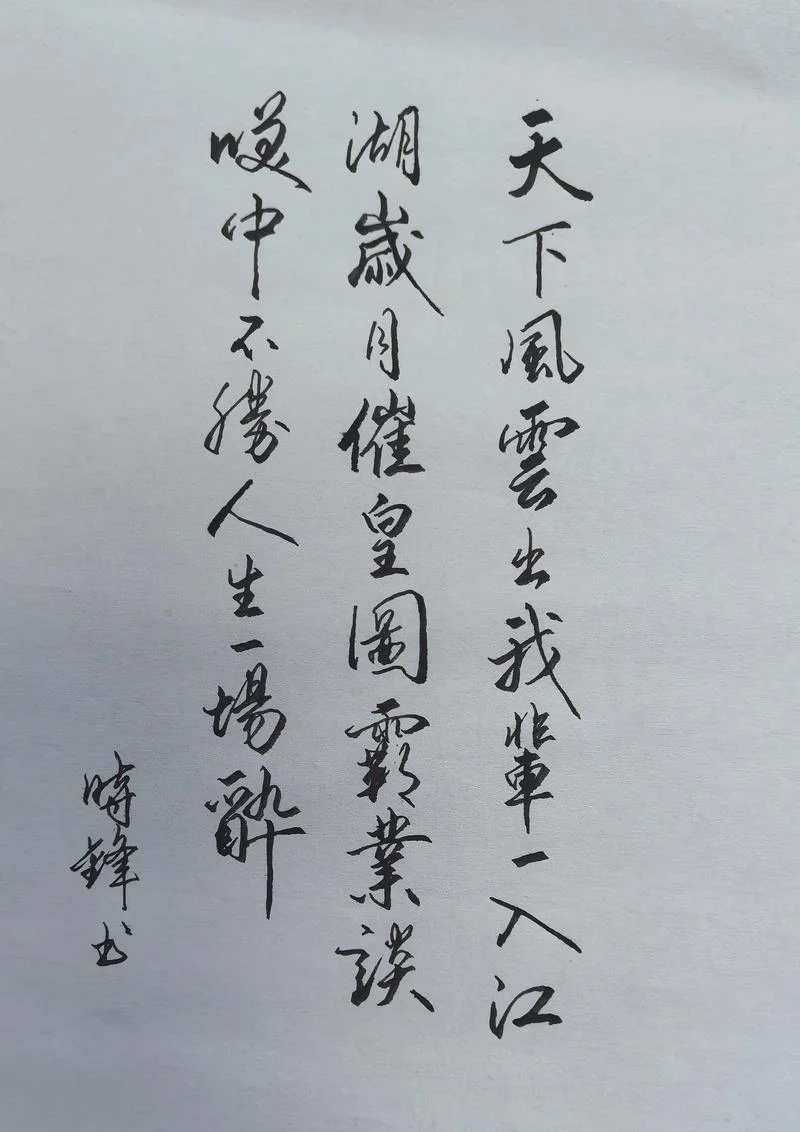 天下風雲出我輩一入江
湖歲月催皇圖霸業談
笑中不勝人生一場醉
時鋒书